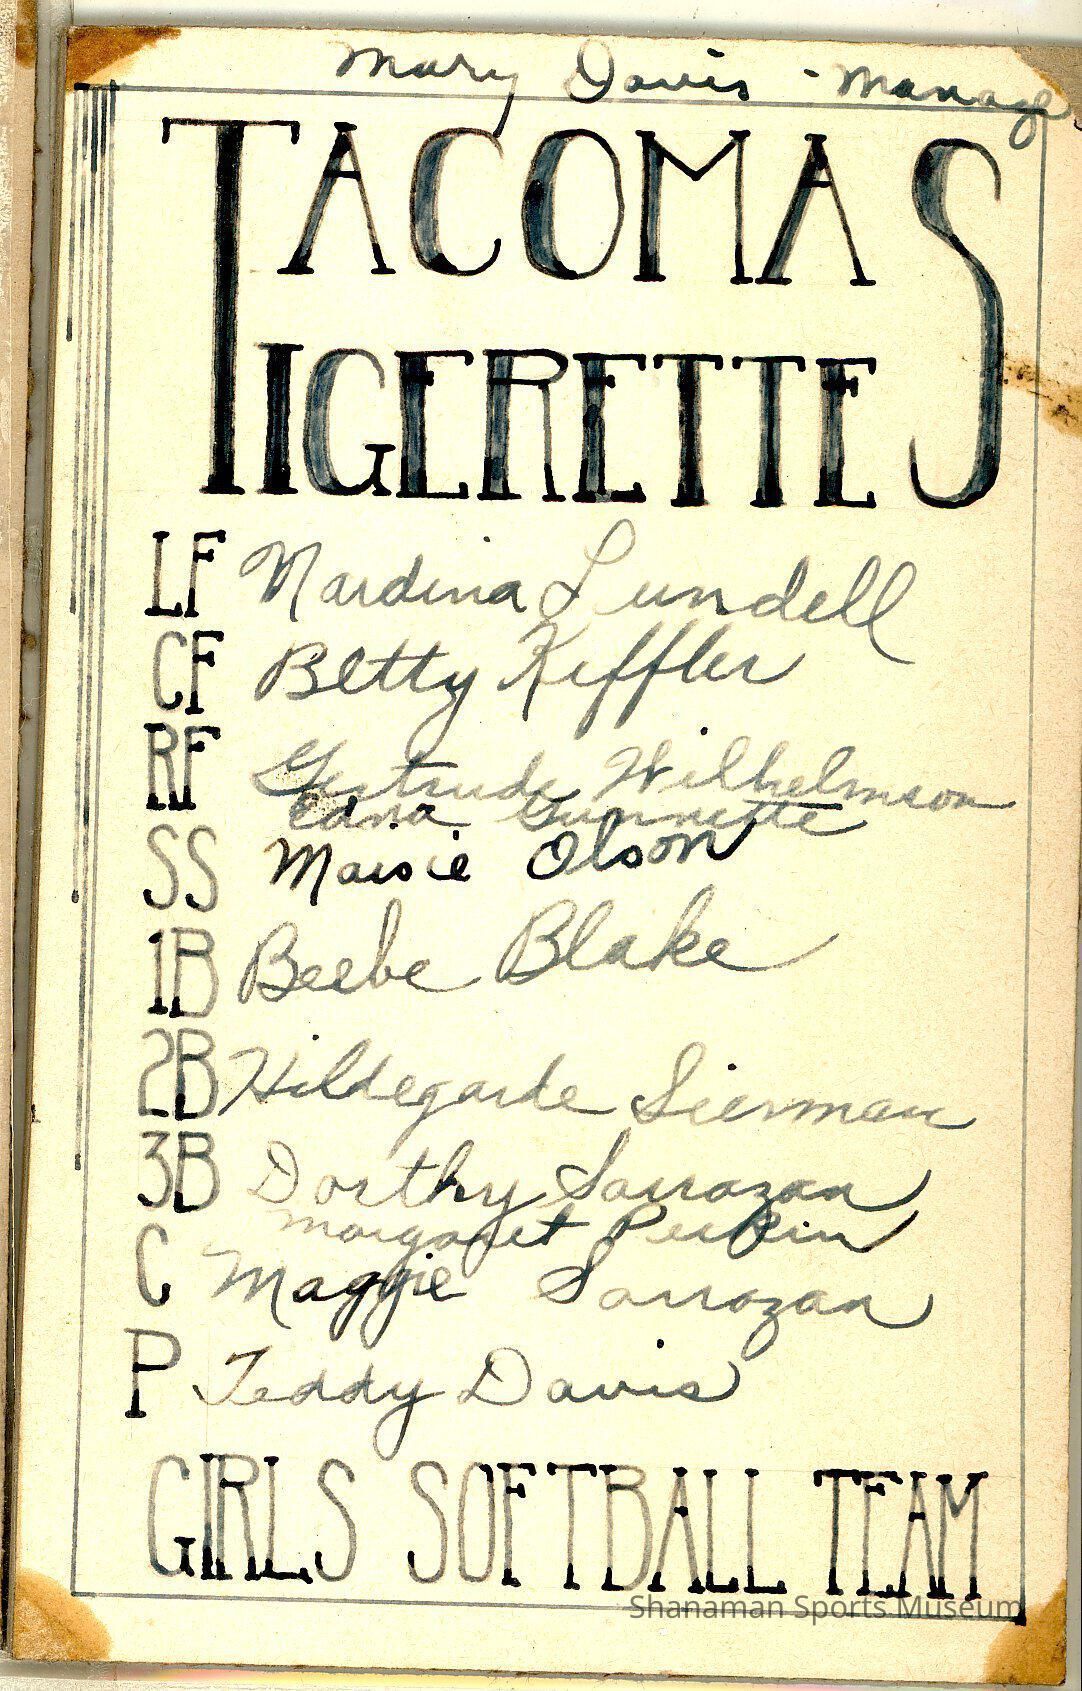 Mary Davis - Manager
TACOMAS
TIGERETTES
LF Nardina Lundell
CF Betty Kiffler
RF Gertrude Wilhelmson
Edna Gunnette
SS Maisie Olson
1B Beebe Blake
2B Hildegarde Sierman
3B Dorthy Sarrazan
Margaret Perkin
C Maggie Sarrazan
P Teddy Davis
GIRLS SOFTBALL TEAM
Shanaman Sports Museum